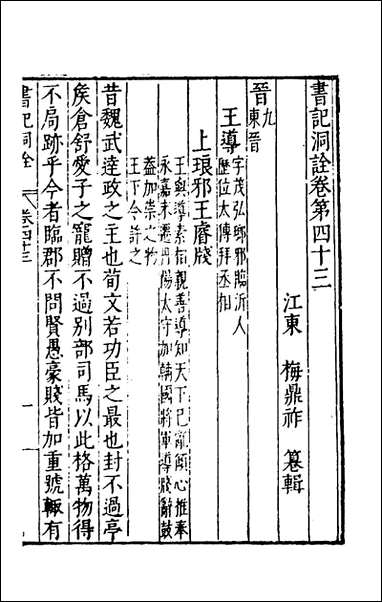 書記洞詮卷第四十三
江東　梅鼎祚　纂輯
晉九
東晉
王導
字茂弘郎邪臨沂人
歷位太傅拜丞相
上琅邪王睿牋
王與導素相親善導知天下已亂傾心推奉
永嘉末遷丹陽太守加輔國將軍導牋辭鼓
蓋加崇之物
王下令許之
昔魏武達政之主也荀文若功臣之最也封不過亭
矦倉舒愛子之寵贈不過別部司馬以此格萬物得
不局跡乎今者臨郡不問賢愚豪賤皆加重號輙有
書記洞詮
卷四十三
一